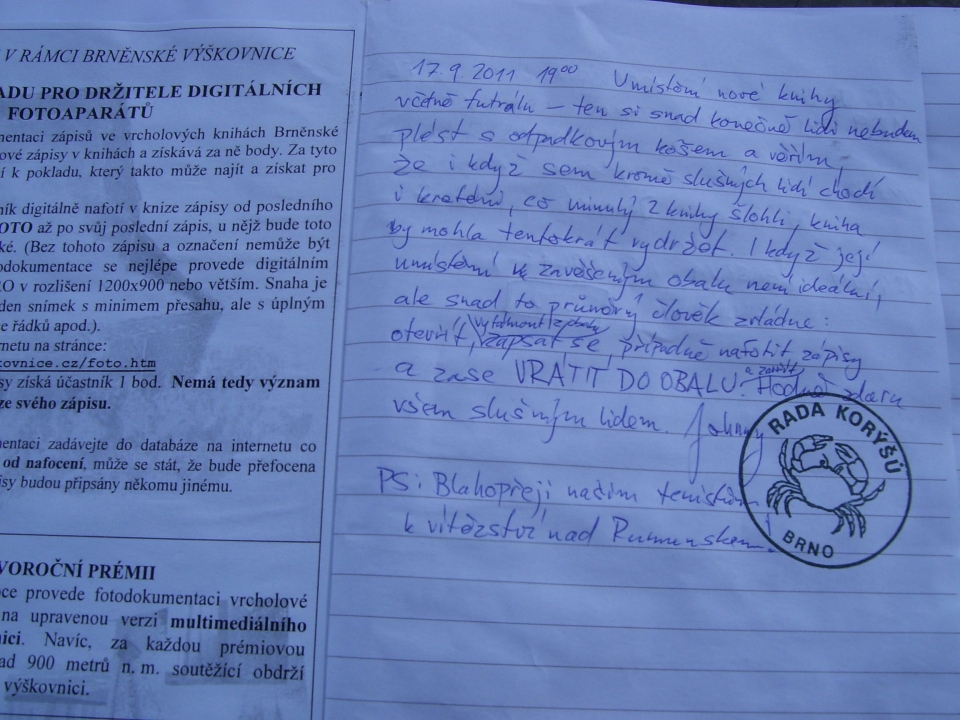 V RÁMCI BRNĚNSKÉ VÝŠKOVNICE
ADU PRO DRŽITELE DIGITÁLNÍCH
FOTOAPARÁTŮ
mentaci zápisů ve vrcholových knihách Brněnské
ové zápisy v knihách a získává za ně body. Za tyto
í k pokladu, který takto může najít a získat pro
ník digitálně nafotí v knize zápisy od posledního
OTO až po svůj poslední zápis, u nějž bude toto
ké. (Bez tohoto zápisu a označení nemůže být
todokumentace se nejlépe provede digitálním
O v rozlišení 1200x900 nebo větším. Snaha je
den snímek s minimem přesahu, ale s úplným
e řádků apod.).
ernetu na stránce:
kovnice.cz/foto.htm
sy získá účastník 1 bod. Nemá tedy význam
ze svého zápisu.
mentaci zadávejte do databáze na internetu co
od nafocení, může se stát, že bude přefocena
isy budou připsány někomu jinému.
VOROČNÍ PRÉMII
ce provede fotodokumentaci vrcholové
na upravenou verzi multimediálního
nici. Navíc, za každou prémiovou
ad 900 metrů n. m. soutěžící obdrží
výškovnici.
17.9.2011 19⁰⁰ Umístění nové knihy
včetně futrálu – ten si snad konečně lidi nebudou
plést s odpadkovým košem a věřím,
že i když sem kromě slušných lidí chodí
i kreténi, co minulý 2 knihy šlohli, kniha
by mohla tentokrát vydržet. I když její
umístění v zavěšeným obalu není ideální,
ale snad to průměrný člověk zvládne:
otevřít, vytáhnout z obalu, zapsat se, případně nafotit zápisy
a zase VRÁTIT DO OBALU a zavřít. Hodně zdaru
všem slušným lidem. Johny
PS: Blahopřeji našim tenistům
k vítězství nad Rumunskem!
RADA KORÝŠŮ
BRNO